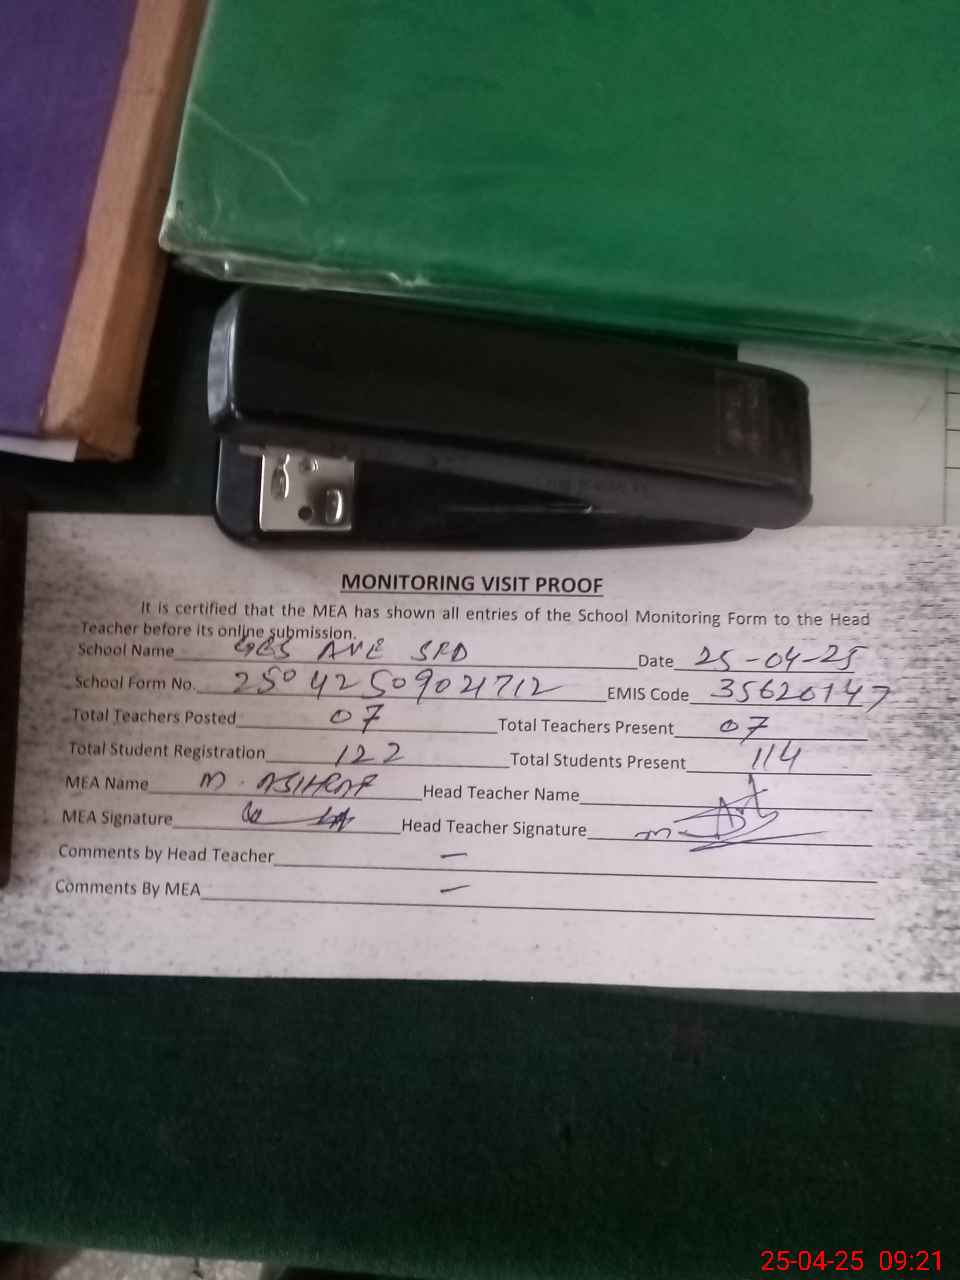 MONITORING VISIT PROOF
It is certified that the MEA has shown all entries of the School Monitoring Form to the Head
Teacher before its online submission.
School Name GES AVE SPD Date 25-04-25
School Form No. 25042509021712 EMIS Code 35620147
Total Teachers Posted 07 Total Teachers Present 07
Total Student Registration 122 Total Students Present 114
MEA Name M. ASHRAF Head Teacher Name
MEA Signature Head Teacher Signature
Comments by Head Teacher —
Comments By MEA —
25-04-25 09:21